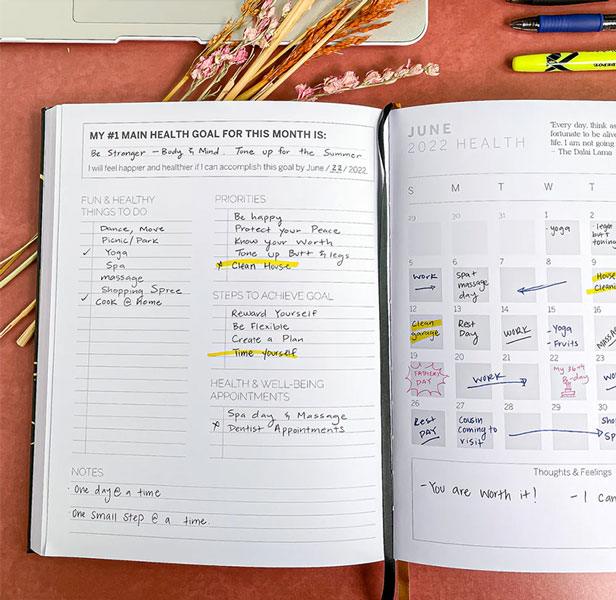 MY #1 MAIN HEALTH GOAL FOR THIS MONTH IS:
Be Stronger – Body & Mind. Tone up for the Summer
I will feel happier and healthier if I can accomplish this goal by June / 22 / 2022.
FUN & HEALTHY
THINGS TO DO
Dance, Move
Picnic/Park
✓ Yoga
Spa
massage
Shopping Spree
✓ Cook @ home
PRIORITIES
Be happy
Protect your Peace
Know your Worth
Tone up Butt & legs
* Clean House
STEPS TO ACHIEVE GOAL
Reward Yourself
Be Flexible
Create a Plan
Time Yourself
HEALTH & WELL-BEING
APPOINTMENTS
Spa day & Massage
* Dentist Appointments
NOTES
· One day @ a time
· One small step @ a time.
JUNE
2022 HEALTH
"Every day, think as
fortunate to be alive
life. I am not going
– The Dalai Lama
S M T W T
29 30 31 1 2
· yoga
· legs
butt
toning
5 6 7 8 9
WORK
Spa +
massage
day
House
Cleani
12 13 14 15 16
Clean
garage
Rest
Day
WORK
- Yoga
- Fruits
MASSA
19 20 21 22 23
FATHERS
DAY
WORK
My 36th
B-day
WO
26 27 28 29 30
Rest
DAY
Cousin
coming to
visit
Sho
Sp
Thoughts & Feelings
- You are worth it!
- I can